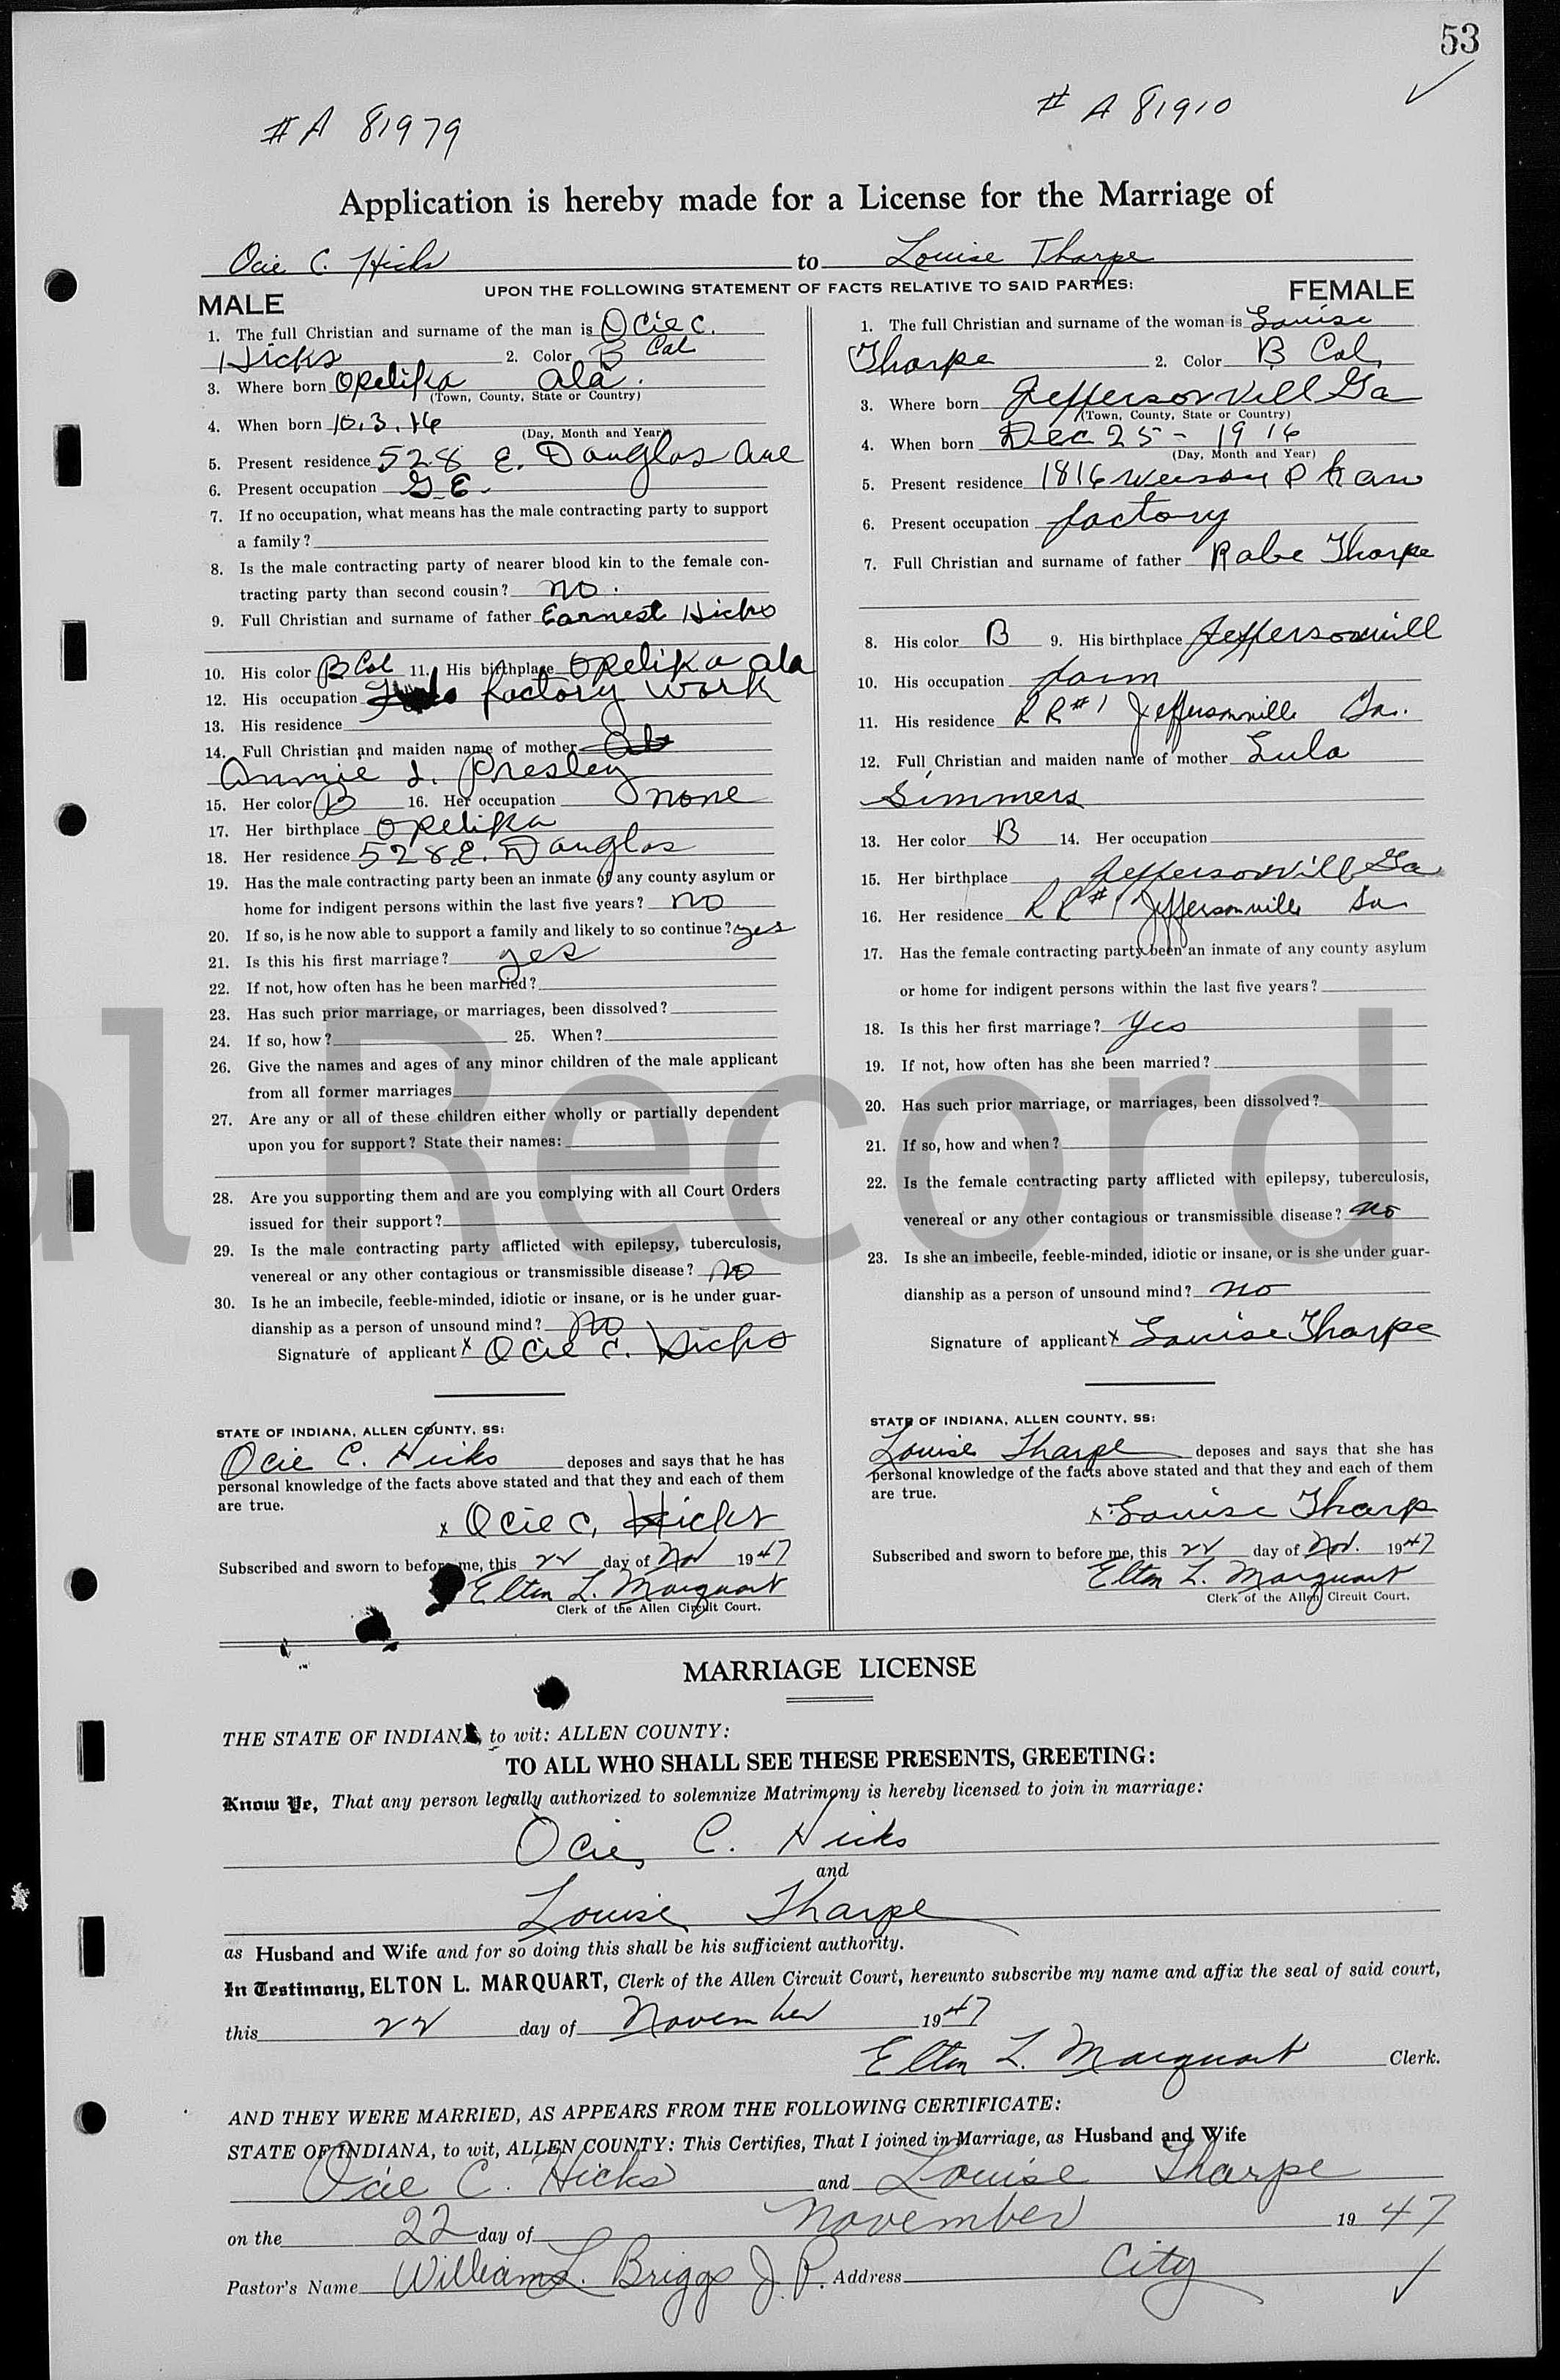 53
# A 81979
# A 81910
Application is hereby made for a License for the Marriage of
Ocie C. Hicks to Louise Tharpe
UPON THE FOLLOWING STATEMENT OF FACTS RELATIVE TO SAID PARTIES:
MALE
1. The full Christian and surname of the man is Ocie C.
Hicks 2. Color B Col
3. Where born Opelika Ala.
(Town, County, State or Country)
4. When born 10.3.16
(Day, Month and Year)
5. Present residence 528 E. Douglas Ave
6. Present occupation G.E.
7. If no occupation, what means has the male contracting party to support
a family?
8. Is the male contracting party of nearer blood kin to the female con-
tracting party than second cousin? no.
9. Full Christian and surname of father Earnest Hicks
10. His color B Col 11. His birthplace Opelika ala
12. His occupation factory work
13. His residence
14. Full Christian and maiden name of mother
Annie L. Presley
15. Her color B 16. Her occupation none
17. Her birthplace Opelika
18. Her residence 528 E. Douglas
19. Has the male contracting party been an inmate of any county asylum or
home for indigent persons within the last five years? no
20. If so, is he now able to support a family and likely to so continue? yes
21. Is this his first marriage? yes
22. If not, how often has he been married?
23. Has such prior marriage, or marriages, been dissolved?
24. If so, how? 25. When?
26. Give the names and ages of any minor children of the male applicant
from all former marriages
27. Are any or all of these children either wholly or partially dependent
upon you for support? State their names:
28. Are you supporting them and are you complying with all Court Orders
issued for their support?
29. Is the male contracting party afflicted with epilepsy, tuberculosis,
venereal or any other contagious or transmissible disease? no
30. Is he an imbecile, feeble-minded, idiotic or insane, or is he under guar-
dianship as a person of unsound mind? no
Signature of applicant x Ocie C. Hicks
STATE OF INDIANA, ALLEN COUNTY, SS:
Ocie C. Hicks deposes and says that he has
personal knowledge of the facts above stated and that they and each of them
are true.
x Ocie C. Hicks
Subscribed and sworn to before me, this 22 day of Nov 1947
Elton L. Marquart
Clerk of the Allen Circuit Court.
FEMALE
1. The full Christian and surname of the woman is Louise
Tharpe 2. Color B Col.
3. Where born Jeffersonvill Ga
(Town, County, State or Country)
4. When born Dec 25 - 1916
(Day, Month and Year)
5. Present residence 1816
6. Present occupation factory
7. Full Christian and surname of father Rabe Tharpe
8. His color B 9. His birthplace Jeffersonvill
10. His occupation farm
11. His residence R R #1 Jeffersonville Ga.
12. Full Christian and maiden name of mother Lula
Simmers
13. Her color B 14. Her occupation
15. Her birthplace Jeffersonvill Ga
16. Her residence R R #1 Jeffersonville Ga
17. Has the female contracting party been an inmate of any county asylum
or home for indigent persons within the last five years?
18. Is this her first marriage? Yes
19. If not, how often has she been married?
20. Has such prior marriage, or marriages, been dissolved?
21. If so, how and when?
22. Is the female contracting party afflicted with epilepsy, tuberculosis,
venereal or any other contagious or transmissible disease? no
23. Is she an imbecile, feeble-minded, idiotic or insane, or is she under guar-
dianship as a person of unsound mind? no
Signature of applicant x Louise Tharpe
STATE OF INDIANA, ALLEN COUNTY, SS:
Louise Tharpe deposes and says that she has
personal knowledge of the facts above stated and that they and each of them
are true.
x Louise Tharp
Subscribed and sworn to before me, this 22 day of Nov. 1947
Elton L. Marquart
Clerk of the Allen Circuit Court.
al Record
MARRIAGE LICENSE
THE STATE OF INDIANA, to wit: ALLEN COUNTY:
TO ALL WHO SHALL SEE THESE PRESENTS, GREETING:
Know Ye, That any person legally authorized to solemnize Matrimony is hereby licensed to join in marriage:
Ocie C. Hicks
and
Louise Tharpe
as Husband and Wife and for so doing this shall be his sufficient authority.
In Testimony, ELTON L. MARQUART, Clerk of the Allen Circuit Court, hereunto subscribe my name and affix the seal of said court,
this 22 day of November 1947
Elton L. Marquart Clerk.
AND THEY WERE MARRIED, AS APPEARS FROM THE FOLLOWING CERTIFICATE:
STATE OF INDIANA, to wit, ALLEN COUNTY: This Certifies, That I joined in Marriage, as Husband and Wife
Ocie C. Hicks and Louise Tharpe
on the 22 day of November 1947
Pastor's Name William L. Briggs J.P. Address City